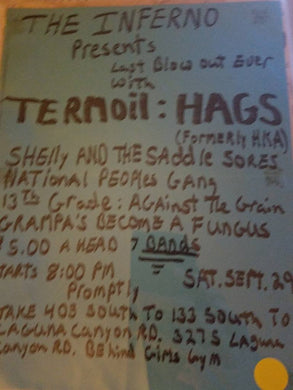 THE INFERNO
Presents
Last Blow out Ever
with
TERMOIL: HAGS
(Formerly H.K.A)
SHElly AND THE SADDlE SORES
NATIONAL PEOPLES GANG
13Th Grade: AGAINST The Grain
GRAMPA'S BECOME A FUNGUS
$5.00 A HEAD 7 BANDS
STARTS 8:00 PM SAT. SEPT. 29
Promptly
TAKE 405 SOUTH TO 133 SOUTH TO
LAGUNA CANYON RD. 3275 LAGUNA
Canyon RD. BEhind Girls Gym